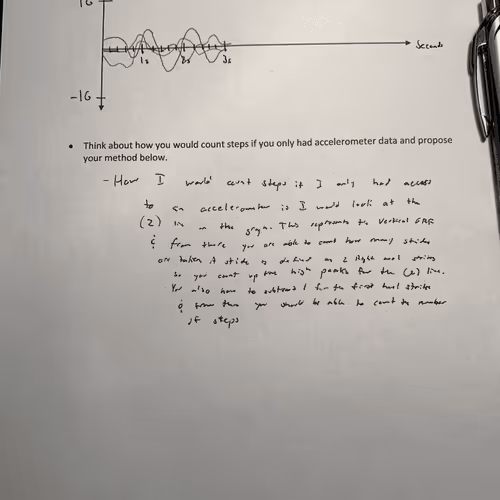 1G
Seconds
1s 2s 3s
-1G
• Think about how you would count steps if you only had accelerometer data and propose
your method below.
- How I would count steps if I only had access
to an accelerometer is I would look at the
(z) line on the graph. This represents the vertical GRF
& from there you are able to count how many strides
are taken. A stride is defined as 2 right heel strikes
so you count up the high peaks for the (z) line.
You also have to subtract 1 for the first heel strike
& from there you should be able to count the number
of steps